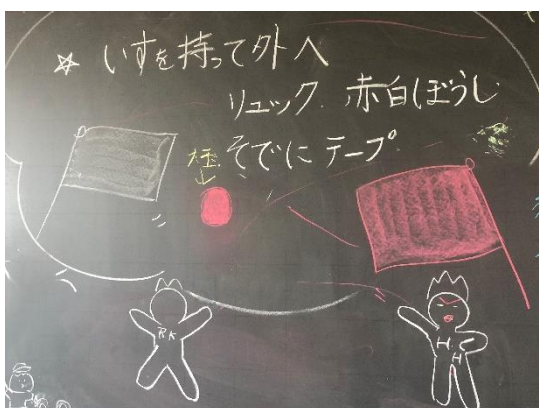 ☆ いすを持って外へ
リュック. 赤白ぼうし
そでにテープ
大玉
RK
H.H